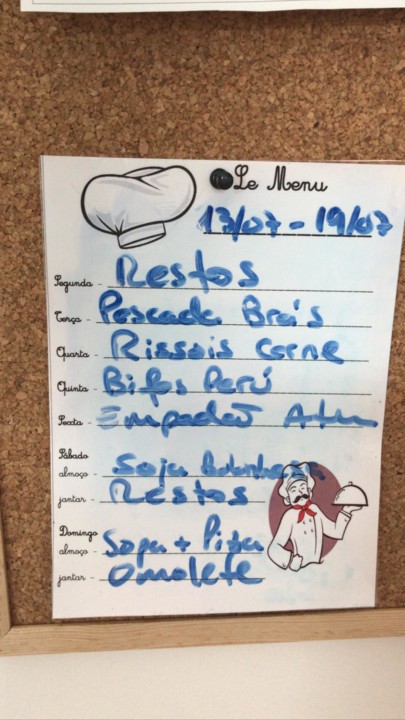 Le Menu
13/07 - 19/07
Segunda - Restos
Terça - Pescada Brás
Quarta - Rissois Carne
Quinta - Bifes Perú
Sexta - Empadão Atum
Sábado
almoço - Soja Bolonhesa
jantar - Restos
Domingo
almoço - Sopa + Pizza
jantar - Omolete